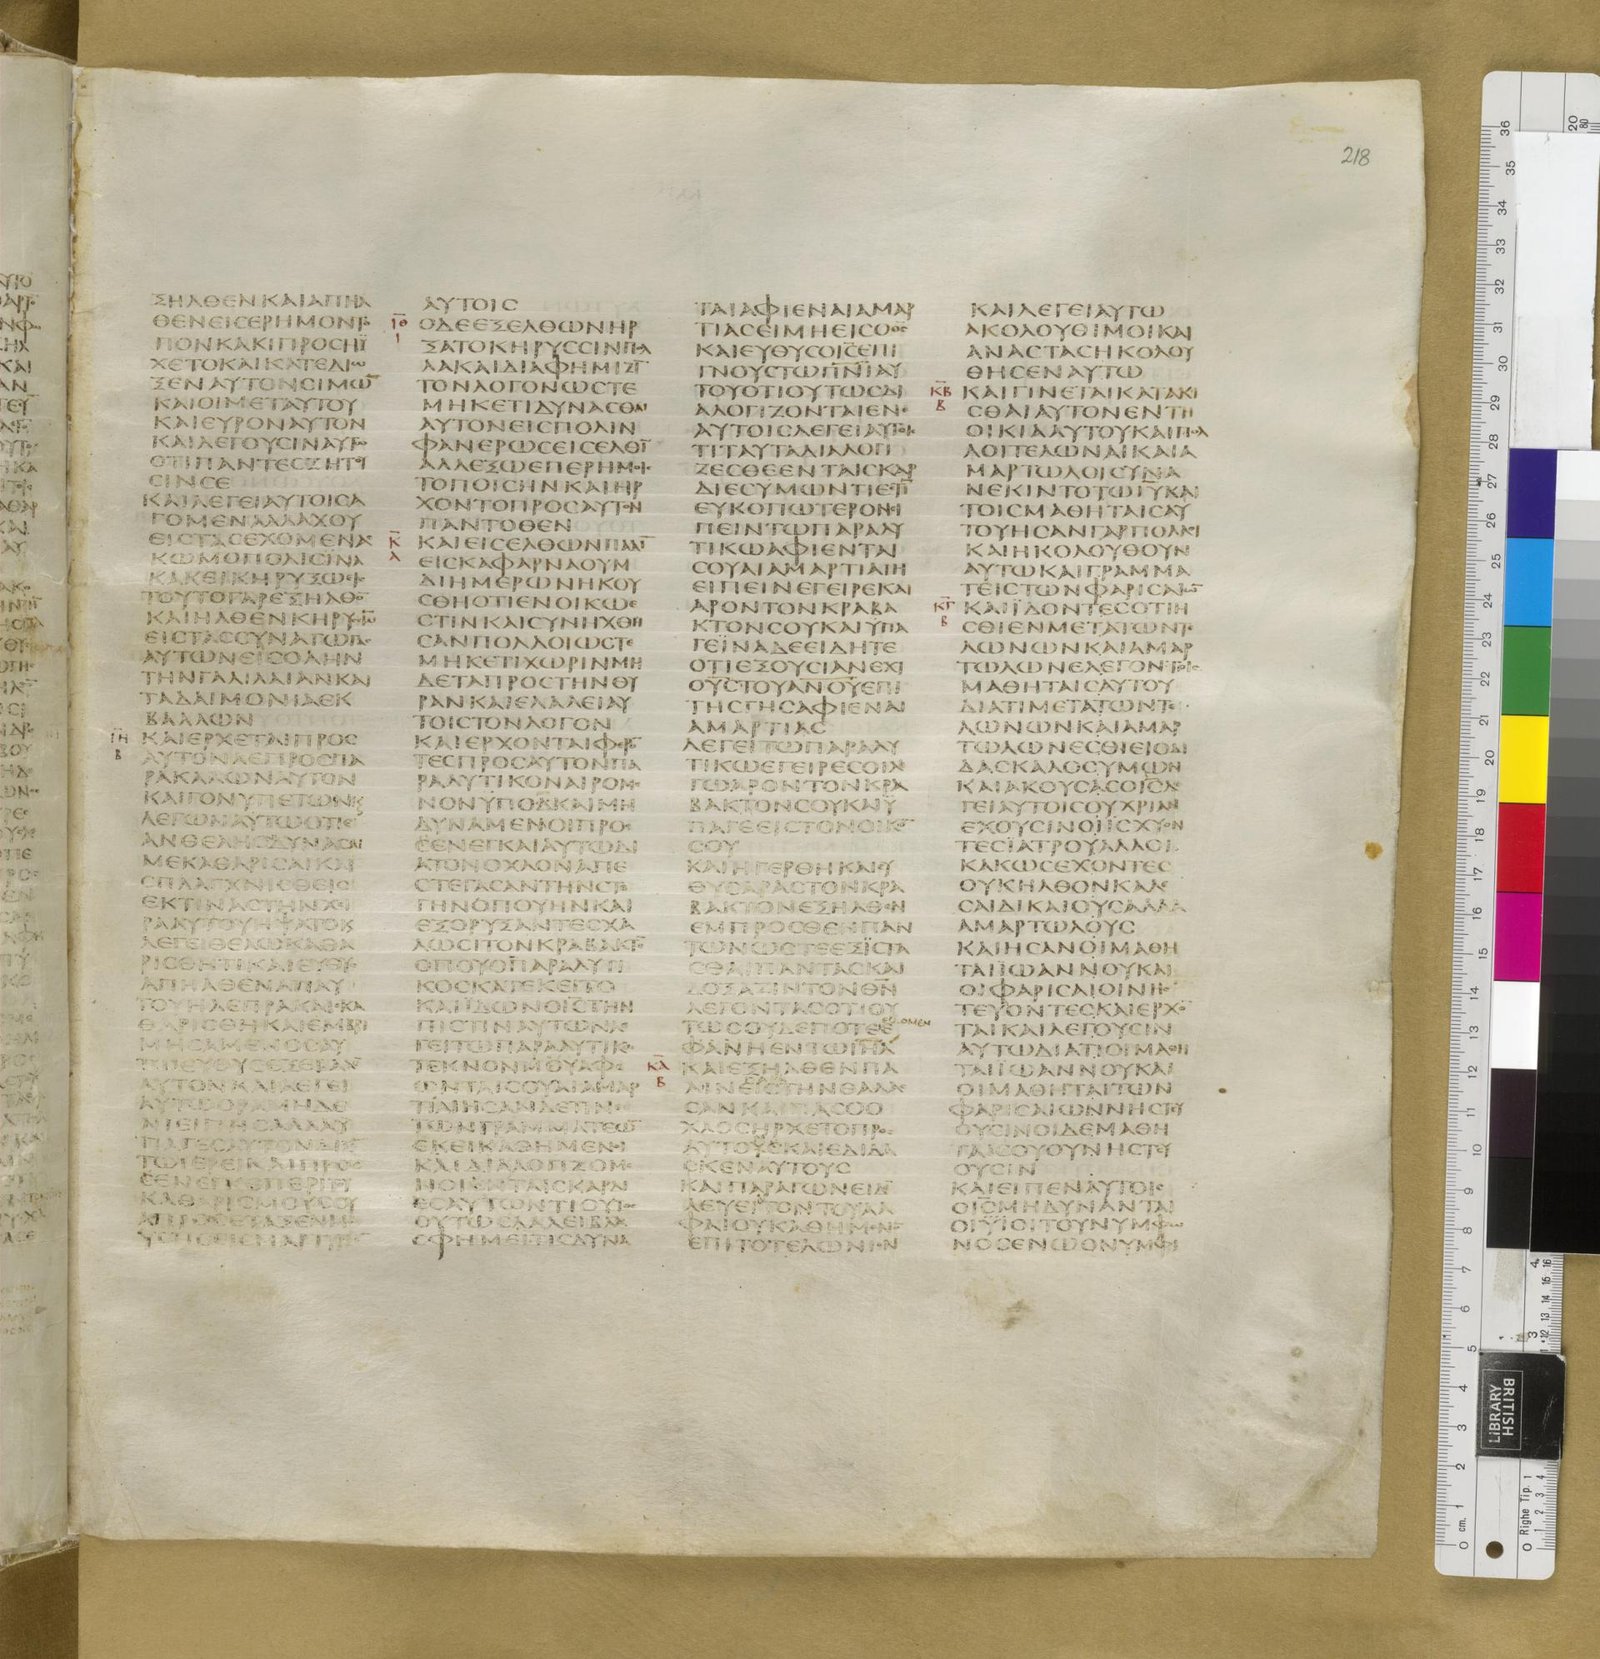 218
ΞΗΛΘΕΝ ΚΑΙ ΑΠΗΛ
ΘΕΝ ΕΙΣ ΕΡΗΜΟΝ Τ
ΠΟΝ ΚΑΚΙ ΠΡΟΣΗΥ
ΧΕΤΟ ΚΑΙ ΚΑΤΕΔΙΩ
ΞΕΝ ΑΥΤΟΝ ΣΙΜΩ̅
ΚΑΙ ΟΙ ΜΕΤ ΑΥΤΟΥ
ΚΑΙ ΕΥΡΟΝ ΑΥΤΟΝ
ΚΑΙ ΛΕΓΟΥΣΙΝ ΑΥΤΩ
ΟΤΙ ΠΑΝΤΕΣ ΖΗΤΟΥ
ΣΙΝ ΣΕ
ΚΑΙ ΛΕΓΕΙ ΑΥΤΟΙΣ Α
ΓΩΜΕΝ ΑΛΛΑΧΟΥ
ΕΙΣ ΤΑΣ ΕΧΟΜΕΝΑΣ
ΚΩΜΟΠΟΛΙΣ ΙΝΑ
ΚΑΚΕΙ ΚΗΡΥΞΩ ΕΙΣ
ΤΟΥΤΟ ΓΑΡ ΕΞΗΛΘΟ̅
ΚΑΙ ΗΛΘΕΝ ΚΗΡΥΣΣΩ̅
ΕΙΣ ΤΑΣ ΣΥΝΑΓΩΓΑΣ
ΑΥΤΩΝ ΕΙΣ ΟΛΗΝ
ΤΗΝ ΓΑΛΙΛΑΙΑΝ ΚΑΙ
ΤΑ ΔΑΙΜΟΝΙΑ ΕΚ
ΒΑΛΛΩΝ
ΙΗ
Β
ΚΑΙ ΕΡΧΕΤΑΙ ΠΡΟΣ
ΑΥΤΟΝ ΛΕΠΡΟΣ ΠΑ
ΡΑΚΑΛΩΝ ΑΥΤΟΝ
ΚΑΙ ΓΟΝΥΠΕΤΩΝ Κ
ΛΕΓΩΝ ΑΥΤΩ ΟΤΙ Ε
ΑΝ ΘΕΛΗΣ ΔΥΝΑΣΑΙ
ΜΕ ΚΑΘΑΡΙΣΑΙ ΚΑΙ
ΣΠΛΑΓΧΝΙΣΘΕΙΣ
ΕΚΤΙΝΑΣ ΤΗΝ ΧΙ
ΡΑ ΑΥΤΟΥ ΗΨΑΤΟ Κ
ΛΕΓΕΙ ΘΕΛΩ ΚΑΘΑ
ΡΙΣΘΗΤΙ ΚΑΙ ΕΥΘΥΣ
ΑΠΗΛΘΕΝ ΑΠ ΑΥ
ΤΟΥ Η ΛΕΠΡΑ ΚΑΙ ΕΚΑ
ΘΑΡΙΣΘΗ ΚΑΙ ΕΜΒΡΙ
ΜΗΣΑΜΕΝΟΣ ΑΥ
ΤΩ ΕΥΘΥΣ ΕΞΕΒΑΛΕ̅
ΑΥΤΟΝ ΚΑΙ ΛΕΓΕΙ
ΑΥΤΩ ΟΡΑ ΜΗΔΕ
ΝΙ ΕΙΠΗΣ ΑΛΛΑ ΥΠΑΓΕ
ΣΕΑΥΤΟΝ ΔΙΞΟΝ
ΤΩ ΙΕΡΕΙ ΚΑΙ ΠΡΟΣ
ΕΝΕΓΚΕ ΠΕΡΙ ΤΟΥ
ΚΑΘΑΡΙΣΜΟΥ ΣΟΥ
Α ΠΡΟΣΕΤΑΞΕΝ ΜΩ
ΥΣΗΣ ΕΙΣ ΜΑΡΤΥΡΙΟ̅
ΑΥΤΟΙΣ
ΙΘ
Ι
Ο ΔΕ ΕΞΕΛΘΩΝ ΗΡ
ΞΑΤΟ ΚΗΡΥΣΣΙΝ ΠΟΛ
ΛΑ ΚΑΙ ΔΙΑΦΗΜΙΖΙ̅
ΤΟΝ ΛΟΓΟΝ ΩΣΤΕ
ΜΗΚΕΤΙ ΔΥΝΑΣΘΑΙ
ΑΥΤΟΝ ΕΙΣ ΠΟΛΙΝ
ΦΑΝΕΡΩΣ ΕΙΣΕΛΘΙ̅
ΑΛΛ ΕΞΩ ΕΠ ΕΡΗΜΟΙΣ
ΤΟΠΟΙΣ ΗΝ ΚΑΙ ΗΡ
ΧΟΝΤΟ ΠΡΟΣ ΑΥΤΟΝ
ΠΑΝΤΟΘΕΝ
Κ
Α
ΚΑΙ ΕΙΣΕΛΘΩΝ ΠΑΛΙ̅
ΕΙΣ ΚΑΦΑΡΝΑΟΥΜ
ΔΙ ΗΜΕΡΩΝ ΗΚΟΥ
ΣΘΗ ΟΤΙ ΕΝ ΟΙΚΩ Ε
ΣΤΙΝ ΚΑΙ ΣΥΝΗΧΘΗ
ΣΑΝ ΠΟΛΛΟΙ ΩΣΤΕ
ΜΗΚΕΤΙ ΧΩΡΙΝ ΜΗ
ΔΕ ΤΑ ΠΡΟΣ ΤΗΝ ΘΥ
ΡΑΝ ΚΑΙ ΕΛΑΛΕΙ ΑΥ
ΤΟΙΣ ΤΟΝ ΛΟΓΟΝ
ΚΑΙ ΕΡΧΟΝΤΑΙ ΦΕΡΟ̅
ΤΕΣ ΠΡΟΣ ΑΥΤΟΝ ΠΑ
ΡΑΛΥΤΙΚΟΝ ΑΙΡΟΜΕ
ΝΟΝ ΥΠΟ Δ ΚΑΙ ΜΗ
ΔΥΝΑΜΕΝΟΙ ΠΡΟΣ
ΕΝΕΓΚΑΙ ΑΥΤΩ ΔΙ
Α ΤΟΝ ΟΧΛΟΝ ΑΠΕ
ΣΤΕΓΑΣΑΝ ΤΗΝ ΣΤΕ
ΓΗΝ ΟΠΟΥ ΗΝ ΚΑΙ
ΕΞΟΡΥΞΑΝΤΕΣ ΧΑ
ΛΩΣΙ ΤΟΝ ΚΡΑΒΑΚΤΟ̅
ΟΠΟΥ Ο ΠΑΡΑΛΥΤΙ
ΚΟΣ ΚΑΤΕΚΕΙΤΟ
ΚΑΙ ΪΔΩΝ Ο Ι̅Σ̅ ΤΗΝ
ΠΙΣΤΙΝ ΑΥΤΩΝ ΛΕ
ΓΕΙ ΤΩ ΠΑΡΑΛΥΤΙΚΩ
ΤΕΚΝΟΝ ΜΟΥ ΑΦΕ
ΩΝΤΑΙ ΣΟΥ ΑΙ ΑΜΑΡ
ΤΙΑΙ ΗΣΑΝ ΔΕ ΤΙΝΕΣ
ΤΩΝ ΓΡΑΜΜΑΤΕΩ̅
ΕΚΕΙ ΚΑΘΗΜΕΝΟΙ
ΚΑΙ ΔΙΑΛΟΓΙΖΟΜΕ
ΝΟΙ ΕΝ ΤΑΙΣ ΚΑΡΔΙ
ΕΣ ΑΥΤΩΝ ΤΙ ΟΥΤΟΣ
ΟΥΤΩΣ ΛΑΛΕΙ ΒΛΑ
ΣΦΗΜΕΙ ΤΙΣ ΔΥΝΑ
ΤΑΙ ΑΦΙΕΝΑΙ ΑΜΑΡ
ΤΙΑΣ ΕΙ ΜΗ ΕΙΣ Ο Θ̅Σ̅
ΚΑΙ ΕΥΘΥΣ Ο Ι̅Σ̅ ΕΠΙ
ΓΝΟΥΣ ΤΩ Π̅Ν̅Ι̅ ΑΥ
ΤΟΥ ΟΤΙ ΟΥΤΩΣ ΔΙ
ΑΛΟΓΙΖΟΝΤΑΙ ΕΝ Ε
ΑΥΤΟΙΣ ΛΕΓΕΙ ΑΥΤΟΙΣ
ΤΙ ΤΑΥΤΑ ΔΙΑΛΟΓΙ
ΖΕΣΘΕ ΕΝ ΤΑΙΣ ΚΑΡ
ΔΙΕΣ ΥΜΩΝ ΤΙ ΕΣΤΙ̅
ΕΥΚΟΠΩΤΕΡΟΝ ΕΙ
ΠΕΙΝ ΤΩ ΠΑΡΑΛΥ
ΤΙΚΩ ΑΦΙΕΝΤΑΙ
ΣΟΥ ΑΙ ΑΜΑΡΤΙΑΙ Η
ΕΙΠΕΙΝ ΕΓΕΙΡΕ ΚΑΙ
ΑΡΟΝ ΤΟΝ ΚΡΑΒΑ
ΚΤΟΝ ΣΟΥ ΚΑΙ ΥΠΑ
ΓΕ ΪΝΑ ΔΕ ΕΙΔΗΤΕ
ΟΤΙ ΕΞΟΥΣΙΑΝ ΕΧΙ
Ο Υ̅Σ̅ ΤΟΥ Α̅Ν̅Ο̅Υ̅ ΕΠΙ
ΤΗΣ ΓΗΣ ΑΦΙΕΝΑΙ
ΑΜΑΡΤΙΑΣ
ΛΕΓΕΙ ΤΩ ΠΑΡΑΛΥ
ΤΙΚΩ ΕΓΕΙΡΕ ΣΟΙ ΛΕ
ΓΩ ΑΡΟΝ ΤΟΝ ΚΡΑ
ΒΑΚΤΟΝ ΣΟΥ ΚΑΙ Ϋ
ΠΑΓΕ ΕΙΣ ΤΟΝ ΟΙΚΟ̅
ΣΟΥ
ΚΑΙ ΗΓΕΡΘΗ ΚΑΙ ΕΥ
ΘΥΣ ΑΡΑΣ ΤΟΝ ΚΡΑ
ΒΑΚΤΟΝ ΕΞΗΛΘΕΝ
ΕΜΠΡΟΣΘΕΝ ΠΑΝ
ΤΩΝ ΩΣΤΕ ΕΞΙΣΤΑ
ΣΘΑΙ ΠΑΝΤΑΣ ΚΑΙ
ΔΟΞΑΖΙΝ ΤΟΝ Θ̅Ν̅
ΛΕΓΟΝΤΑΣ ΟΤΙ ΟΥ
ΤΩΣ ΟΥΔΕΠΟΤΕ Ε
ΕΙΔΟΜΕΝ
ΦΑΝΗ ΕΝ ΤΩ Ι̅Η̅Λ̅
ΚΑ
Β
ΚΑΙ ΕΞΗΛΘΕΝ ΠΑ
ΛΙΝ ΕΙΣ ΤΗΝ ΘΑΛΑΣ
ΣΑΝ ΚΑΙ ΠΑΣ Ο Ο
ΧΛΟΣ ΗΡΧΕΤΟ ΠΡΟΣ
ΑΥΤΟΝ ΚΑΙ ΕΔΙΔΑ
ΣΚΕΝ ΑΥΤΟΥΣ
ΚΑΙ ΠΑΡΑΓΩΝ ΕΙΔΕ̅
ΛΕΥΕΙ ΤΟΝ ΤΟΥ ΑΛ
ΦΑΙΟΥ ΚΑΘΗΜΕΝΟ̅
ΕΠΙ ΤΟ ΤΕΛΩΝΙΟΝ
ΚΑΙ ΛΕΓΕΙ ΑΥΤΩ
ΑΚΟΛΟΥΘΙ ΜΟΙ ΚΑΙ
ΑΝΑΣΤΑΣ ΗΚΟΛΟΥ
ΘΗΣΕΝ ΑΥΤΩ
ΚΒ
Β
ΚΑΙ ΓΙΝΕΤΑΙ ΚΑΤΑΚΙ
ΣΘΑΙ ΑΥΤΟΝ ΕΝ ΤΗ
ΟΙΚΙΑ ΑΥΤΟΥ ΚΑΙ ΠΟΛ
ΛΟΙ ΤΕΛΩΝΑΙ ΚΑΙ Α
ΜΑΡΤΩΛΟΙ ΣΥΝΑ
ΝΕΚΙΝΤΟ ΤΩ Ι̅Υ̅ ΚΑΙ
ΤΟΙΣ ΜΑΘΗΤΑΙΣ ΑΥ
ΤΟΥ ΗΣΑΝ ΓΑΡ ΠΟΛΛΟΙ
ΚΑΙ ΗΚΟΛΟΥΘΟΥΝ
ΑΥΤΩ ΚΑΙ ΓΡΑΜΜΑ
ΤΕΙΣ ΤΩΝ ΦΑΡΙΣΑΙΩ̅
ΚΓ
Β
ΚΑΙ ΪΔΟΝΤΕΣ ΟΤΙ Η
ΣΘΙΕΝ ΜΕΤΑ ΤΩΝ ΤΕ
ΛΩΝΩΝ ΚΑΙ ΑΜΑΡ
ΤΩΛΩΝ ΕΛΕΓΟΝ ΤΟΙΣ
ΜΑΘΗΤΑΙΣ ΑΥΤΟΥ
ΔΙΑΤΙ ΜΕΤΑ ΤΩΝ ΤΕ
ΛΩΝΩΝ ΚΑΙ ΑΜΑΡ
ΤΩΛΩΝ ΕΣΘΙΕΙ Ο ΔΙ
ΔΑΣΚΑΛΟΣ ΥΜΩΝ
ΚΑΙ ΑΚΟΥΣΑΣ Ο Ι̅Σ̅ ΛΕ
ΓΕΙ ΑΥΤΟΙΣ ΟΥ ΧΡΙΑΝ
ΕΧΟΥΣΙΝ ΟΙ ΙΣΧΥΟΝ
ΤΕΣ ΙΑΤΡΟΥ ΑΛΛ ΟΙ
ΚΑΚΩΣ ΕΧΟΝΤΕΣ
ΟΥΚ ΗΛΘΟΝ ΚΑΛΕ
ΣΑΙ ΔΙΚΑΙΟΥΣ ΑΛΛΑ
ΑΜΑΡΤΩΛΟΥΣ
ΚΑΙ ΗΣΑΝ ΟΙ ΜΑΘΗ
ΤΑΙ ΪΩΑΝΝΟΥ ΚΑΙ
ΟΙ ΦΑΡΙΣΑΙΟΙ ΝΗΣ
ΤΕΥΟΝΤΕΣ ΚΑΙ ΕΡΧΟ̅
ΤΑΙ ΚΑΙ ΛΕΓΟΥΣΙΝ
ΑΥΤΩ ΔΙΑΤΙ ΟΙ ΜΑΘΗ
ΤΑΙ ΪΩΑΝΝΟΥ ΚΑΙ
ΟΙ ΜΑΘΗΤΑΙ ΤΩΝ
ΦΑΡΙΣΑΙΩΝ ΝΗΣΤΕΥ
ΟΥΣΙΝ ΟΙ ΔΕ ΜΑΘΗ
ΤΑΙ ΣΟΥ ΟΥ ΝΗΣΤΕΥ
ΟΥΣΙΝ
ΚΑΙ ΕΙΠΕΝ ΑΥΤΟΙΣ
Ο Ι̅Σ̅ ΜΗ ΔΥΝΑΝΤΑΙ
ΟΙ ΫΙΟΙ ΤΟΥ ΝΥΜΦΩ
ΝΟΣ ΕΝ Ω Ο ΝΥΜΦΙ
BRITISH
LIBRARY